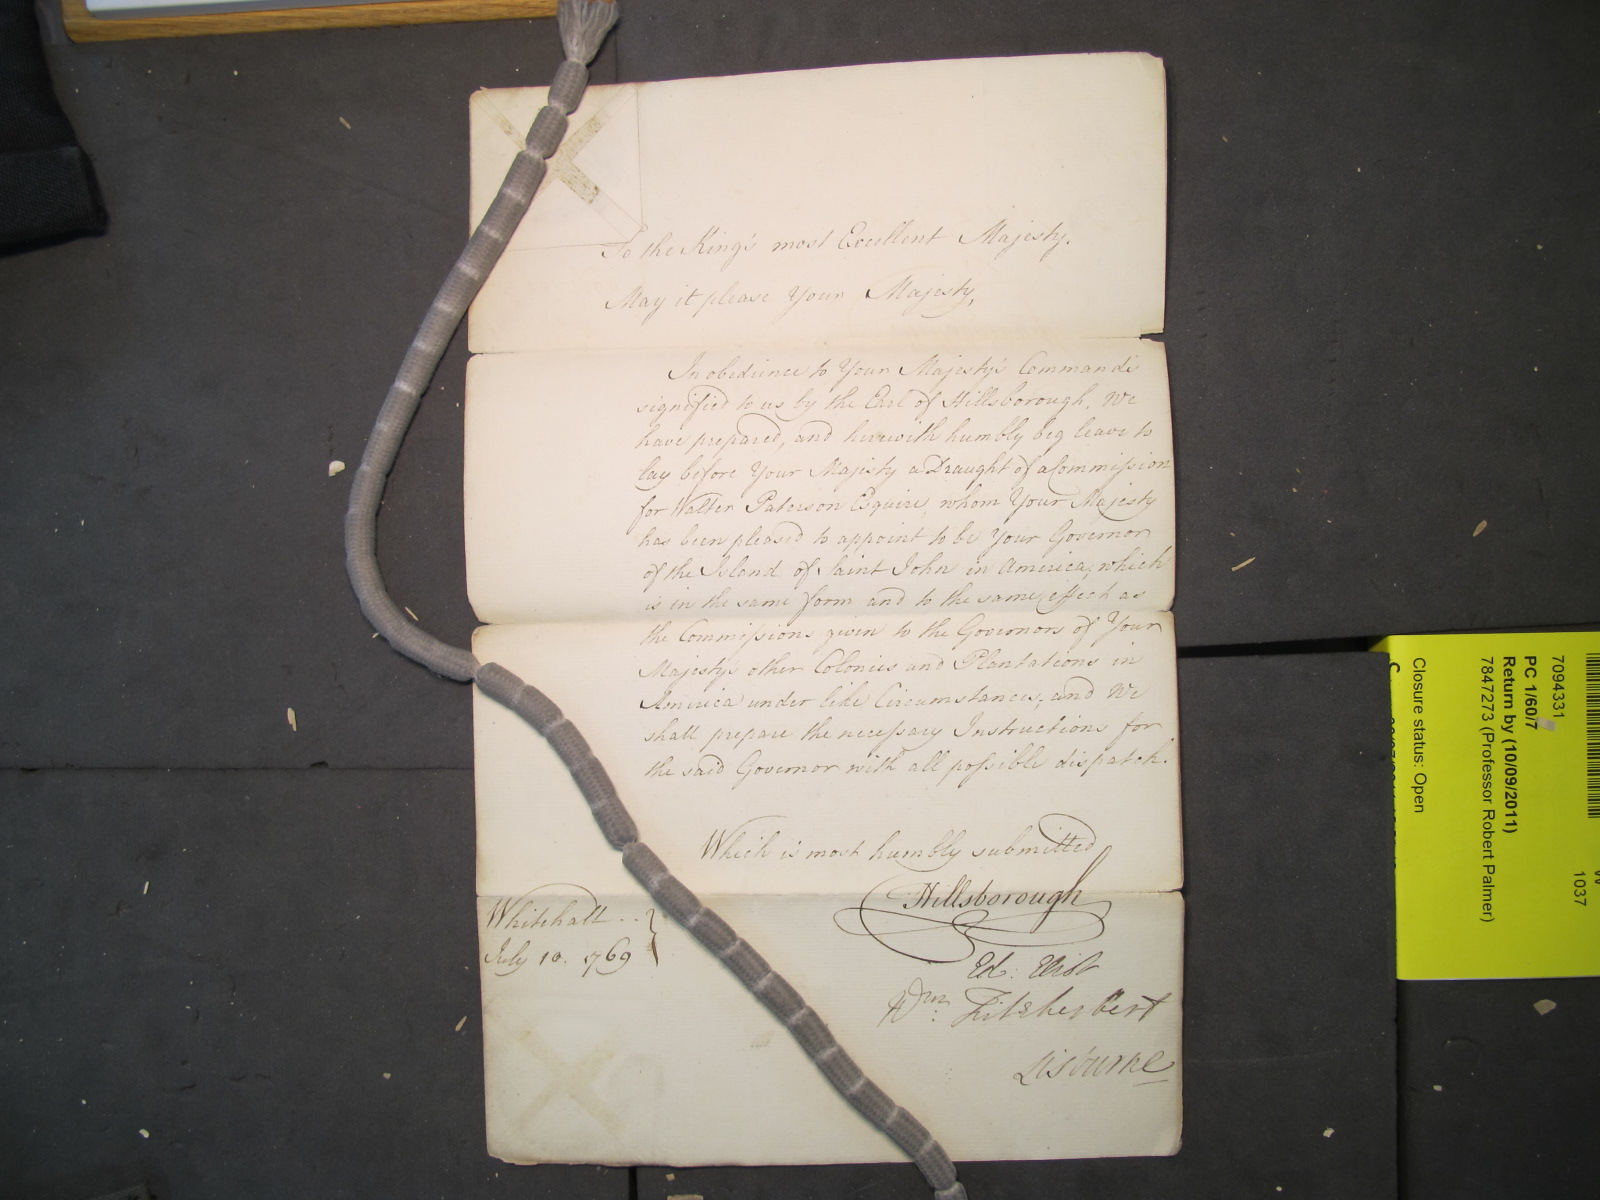 To the King's most Excellent Majesty.
May it please Your Majesty,
In obedience to Your Majesty's Commands
signified to us by the Earl of Hillsborough, We
have prepared, and herewith humbly beg leave to
lay before Your Majesty a Draught of a Commission
for Walter Paterson Esquire, whom Your Majesty
has been pleased to appoint to be Your Governor
of the Island of Saint John in America, which
is in the same form and to the same effect as
the Commissions given to the Governors of Your
Majesty's other Colonies and Plantations in
America under like Circumstances, and We
shall prepare the necessary Instructions for
the said Governor with all possible dispatch.
Which is most humbly submitted
Hillsborough
Ed: Eliot
Wm: Fitzherbert
Lisburne
Whitehall
July 10. 1769
7094331
PC 1/60/7
Return by (10/09/2011)
7847273 (Professor Robert Palmer)
Closure status: Open
1037